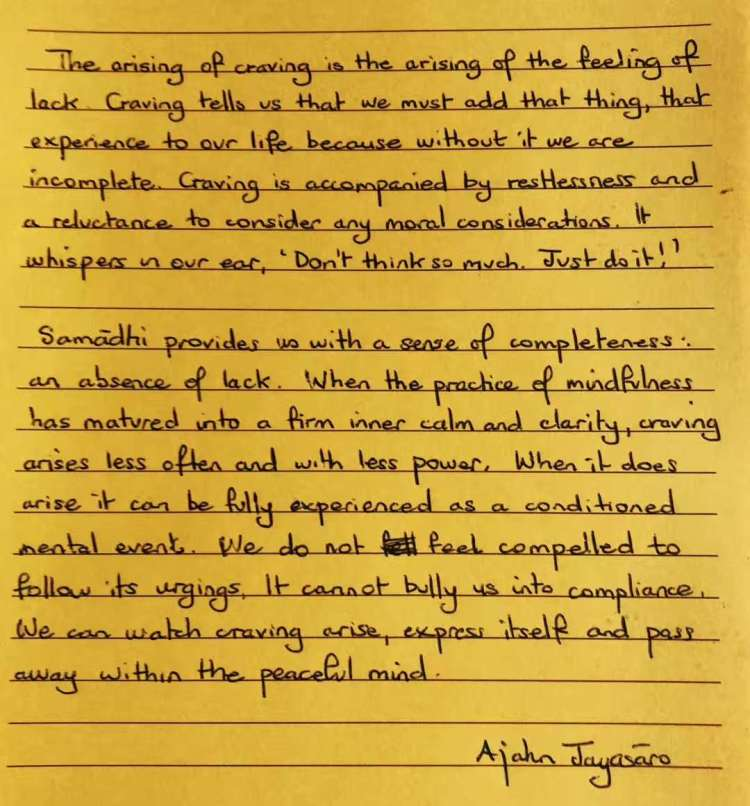 The arising of craving is the arising of the feeling of
lack. Craving tells us that we must add that thing, that
experience to our life because without it we are
incomplete. Craving is accompanied by restlessness and
a reluctance to consider any moral considerations. It
whispers in our ear, 'Don't think so much. Just do it!'
Samādhi provides us with a sense of completeness:
an absence of lack. When the practice of mindfulness
has matured into a firm inner calm and clarity, craving
arises less often and with less power. When it does
arise it can be fully experienced as a conditioned
mental event. We do not feel compelled to
follow its urgings. It cannot bully us into compliance.
We can watch craving arise, express itself and pass
away within the peaceful mind.
Ajahn Jayasāro